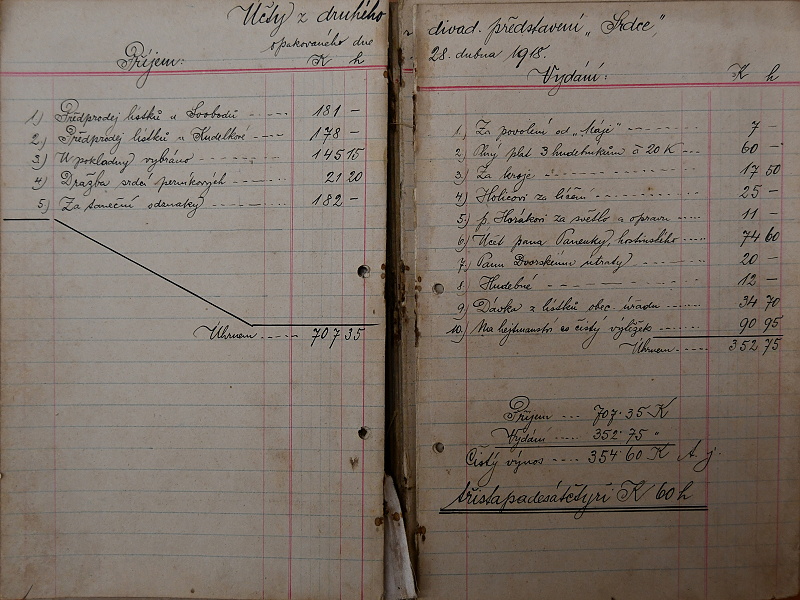 Účty z druhého
opakovaného dne
Příjem: K h
1) Předprodej lístků u Svobodů ---- 181 –
2) Předprodej lístků u Kudelkové ---- 178 –
3) V pokladny vybráno ---- 145 15
4) Dražba srdcí perníkových ---- 21 20
5) Za taneční odznaky ---- 182 –
Úhrnem ---- 707 35
divad. představení „Srdce"
28. dubna 1918.
Vydání: K h
1) Za povolení od „Máje" ---- 7 –
2) Plný plat 3 hudebníkům à 20 K ---- 60 –
3) Za kroje ---- 17 50
4) Holičovi za líčení ---- 25 –
5) p. Horákovi za světlo a opravu ---- 11 –
6) Účet pana Panenky, hostinského ---- 74 60
7) Panu Dvorskému útraty ---- 20 –
8) Hudebné ---- 12 –
9) Dávka z lístků obec. úřadu ---- 34 70
10) Na hejtmanství čistý výtěžek ---- 90 95
Úhrnem ---- 352 75
Příjem ---- 707·35 K
Vydání ---- 352·75 "
Čistý výnos ---- 354·60 K t. j.
třistapadesátčtyři K 60 h